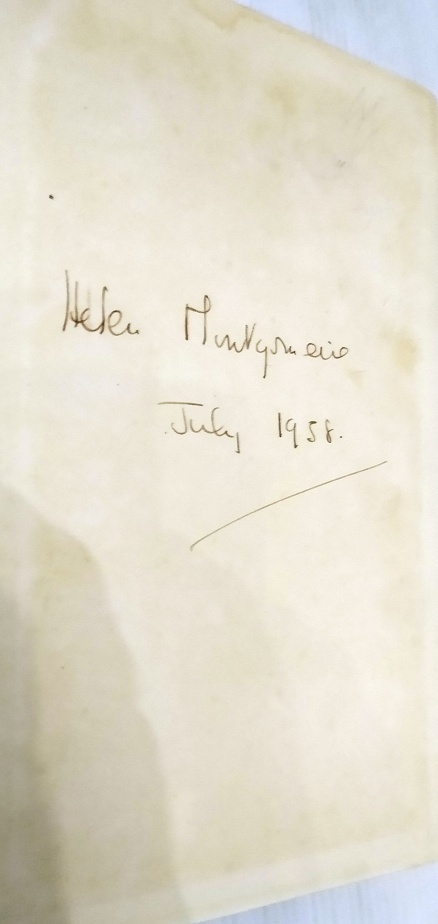 Helen Montgomerie
July 1958.